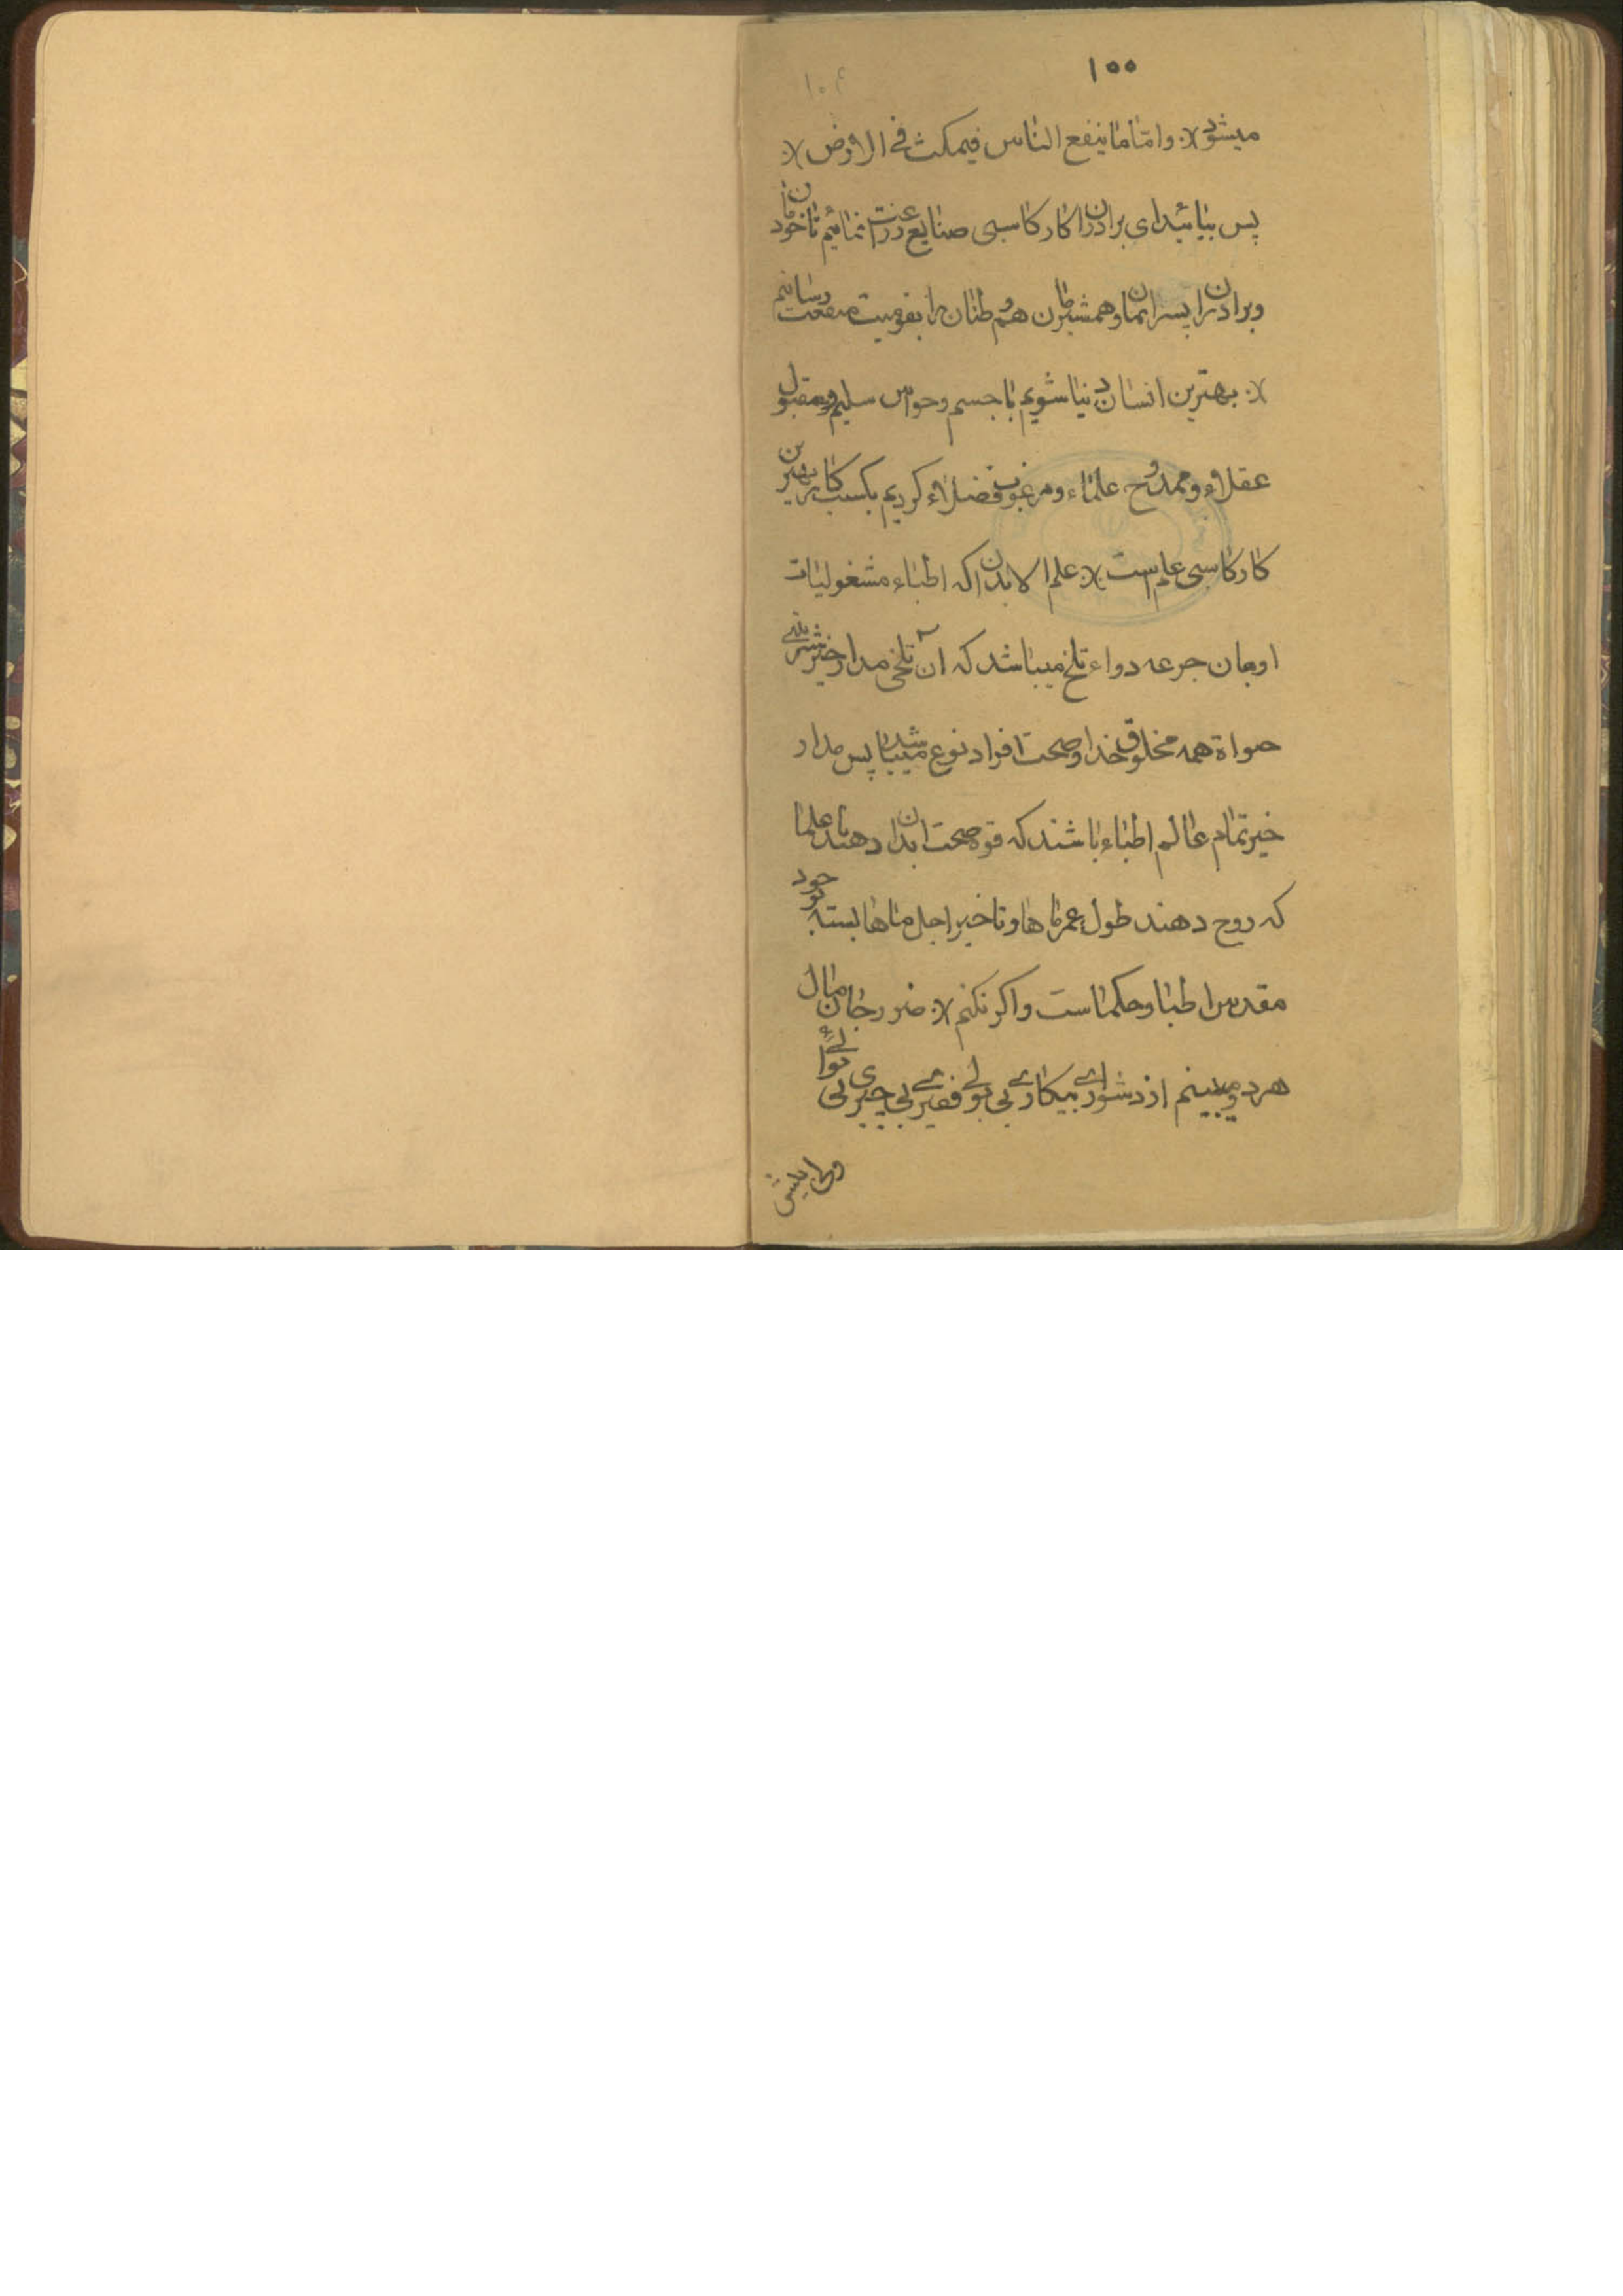 ۱۰۰
میشود ⁒ وامّا ما ینفع الناس فیمکث فی الارض ⁒
پس بیائید ای برادران کار کاسبی صنایع زراعت نمائیم تا خودمان
و برادران پسرانمان و همشیرمان هموطنان را بقومیت منفعت رسانیم
⁒ بهترین انسان دنیا شویم با جسم و حواس سلیم و مقبول
عقلاء و ممدوح علماء و مرغوب فضلاء کردیم بکسب کار بهترین
کار کاسبی علم است ⁒ علم الابدان که اطباء مشغولیات
او بهان جرعه دواء تلخ میباشد که آن تلخی مدار خیر
حواة همه مخلوق خدا و صحت افراد نوع میباشد پس مدار
خیر تمام عالم اطباء باشند که قوه صحت ابدان دهند یا علما
که روح دهند طول عمر ماها و تاخیر اجل ماها بسته بوجود
مقدس اطبا و حکما است واکر نکنم ⁒ ضرر جان مال
هر دو میبینم از دشواری بیکاری بی پولی فقیری بی چیزی بی نوائی